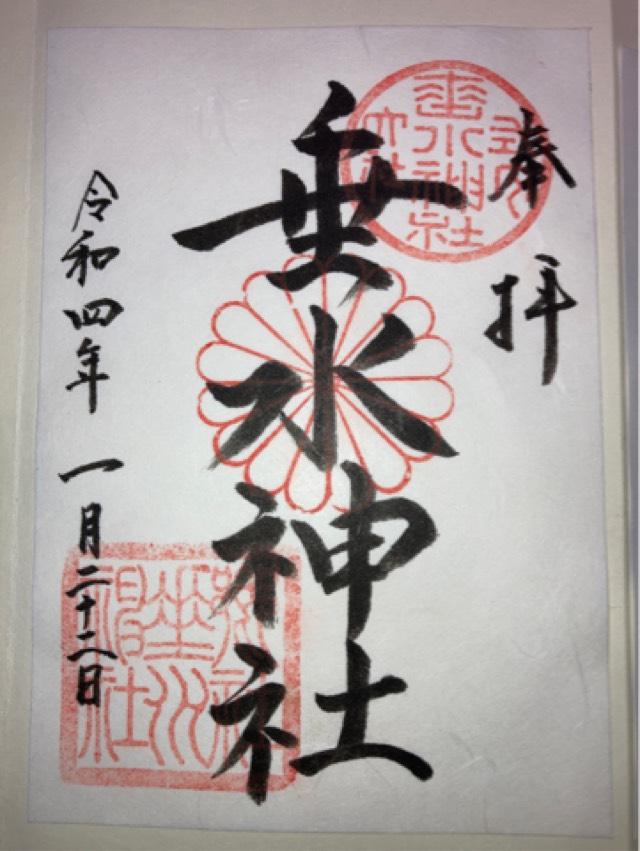 奉拝
垂水神社
令和四年 一月二十二日
垂水神社